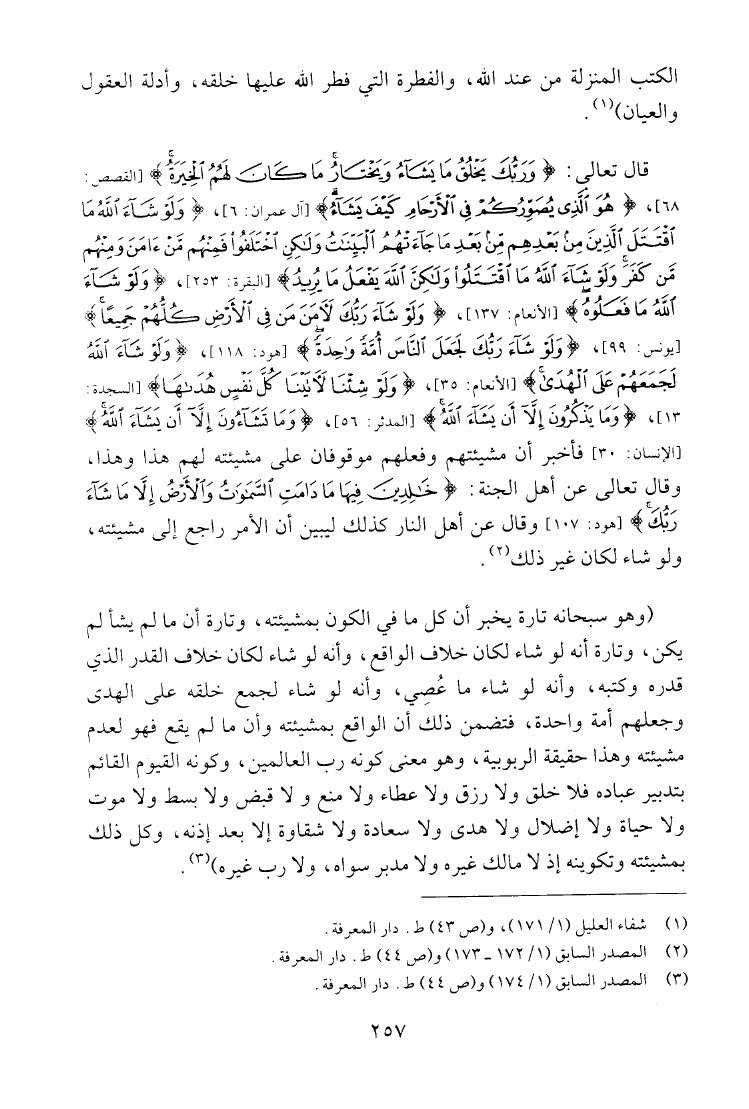 الكتب المنزلة من عند الله، والفطرة التي فطر الله عليها خلقه، وأدلة العقول
والعيان)(١).
قال تعالى: ﴿وَرَبُّكَ يَخْلُقُ مَا يَشَآءُ وَيَخْتَارُ ۗ مَا كَانَ لَهُمُ ٱلْخِيَرَةُ ۚ﴾ [القصص:
٦٨]، ﴿هُوَ ٱلَّذِى يُصَوِّرُكُمْ فِى ٱلْأَرْحَامِ كَيْفَ يَشَآءُ ۚ﴾ [آل عمران: ٦]، ﴿وَلَوْ شَآءَ ٱللَّهُ مَا
ٱقْتَتَلَ ٱلَّذِينَ مِنۢ بَعْدِهِم مِّنۢ بَعْدِ مَا جَآءَتْهُمُ ٱلْبَيِّنَٰتُ وَلَٰكِنِ ٱخْتَلَفُوا۟ فَمِنْهُم مَّنْ ءَامَنَ وَمِنْهُم
مَّن كَفَرَ ۚ وَلَوْ شَآءَ ٱللَّهُ مَا ٱقْتَتَلُوا۟ وَلَٰكِنَّ ٱللَّهَ يَفْعَلُ مَا يُرِيدُ﴾ [البقرة: ٢٥٣]، ﴿وَلَوْ شَآءَ
ٱللَّهُ مَا فَعَلُوهُ ۖ﴾ [الأنعام: ١٣٧]، ﴿وَلَوْ شَآءَ رَبُّكَ لَءَامَنَ مَن فِى ٱلْأَرْضِ كُلُّهُمْ جَمِيعًا ۚ﴾
[يونس: ٩٩]، ﴿وَلَوْ شَآءَ رَبُّكَ لَجَعَلَ ٱلنَّاسَ أُمَّةً وَٰحِدَةً ۖ﴾ [هود: ١١٨]، ﴿وَلَوْ شَآءَ ٱللَّهُ
لَجَمَعَهُمْ عَلَى ٱلْهُدَىٰ ۚ﴾ [الأنعام: ٣٥]، ﴿وَلَوْ شِئْنَا لَءَاتَيْنَا كُلَّ نَفْسٍ هُدَىٰهَا﴾ [السجدة:
١٣]، ﴿وَمَا يَذْكُرُونَ إِلَّآ أَن يَشَآءَ ٱللَّهُ ۚ﴾ [المدثر: ٥٦]، ﴿وَمَا تَشَآءُونَ إِلَّآ أَن يَشَآءَ ٱللَّهُ ۚ﴾
[الإنسان: ٣٠] فأخبر أن مشيئتهم وفعلهم موقوفان على مشيئته لهم هذا وهذا،
وقال تعالى عن أهل الجنة: ﴿خَٰلِدِينَ فِيهَا مَا دَامَتِ ٱلسَّمَٰوَٰتُ وَٱلْأَرْضُ إِلَّا مَا شَآءَ
رَبُّكَ ۚ﴾ [هود: ١٠٧] وقال عن أهل النار كذلك ليبين أن الأمر راجع إلى مشيئته،
ولو شاء لكان غير ذلك(٢).
(وهو سبحانه تارة يخبر أن كل ما في الكون بمشيئته، وتارة أن ما لم يشأ لم
يكن، وتارة أنه لو شاء لكان خلاف الواقع، وأنه لو شاء لكان خلاف القدر الذي
قدره وكتبه، وأنه لو شاء ما عُصِي، وأنه لو شاء لجمع خلقه على الهدى
وجعلهم أمة واحدة، فتضمن ذلك أن الواقع بمشيئته وأن ما لم يقع فهو لعدم
مشيئته وهذا حقيقة الربوبية، وهو معنى كونه رب العالمين، وكونه القيوم القائم
بتدبير عباده فلا خلق ولا رزق ولا عطاء ولا منع و لا قبض ولا بسط ولا موت
ولا حياة ولا إضلال ولا هدى ولا سعادة ولا شقاوة إلا بعد إذنه، وكل ذلك
بمشيئته وتكوينه إذ لا مالك غيره ولا مدبر سواه، ولا رب غيره)(٣).
(١) شفاء العليل (١/ ١٧١)، و(ص ٤٣) ط. دار المعرفة.
(٢) المصدر السابق (١/ ١٧٢ ـ ١٧٣) و(ص ٤٤) ط. دار المعرفة.
(٣) المصدر السابق (١/ ١٧٤) و(ص ٤٤) ط. دار المعرفة.
٢٥٧